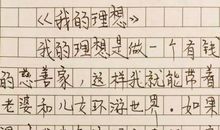 《我的理想》
我的理想是做一个有钱
的慈善家，这样我就能带着
老婆和儿女环游世界。如果